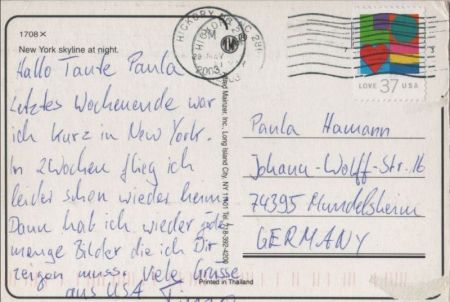 1708 X
New York skyline at night.
Hallo Tante Paula
letztes Wochenende war
ich kurz in New York.
In 2 Wochen flieg ich
leider schon wieder heim.
Dann hab ich wieder jede
menge Bilder die ich Dir
zeigen muss. Viele Grüsse
aus USA
Alfred Mainzer, Inc., Long Island City, NY 11101 Tel. 718-392-4200
Printed in Thailand
HICKORY NC 286
PM
2003
LOVE 37 USA
Paula Hamann
Johann-Wolff-Str. 16
74395 Mundelsheim
GERMANY